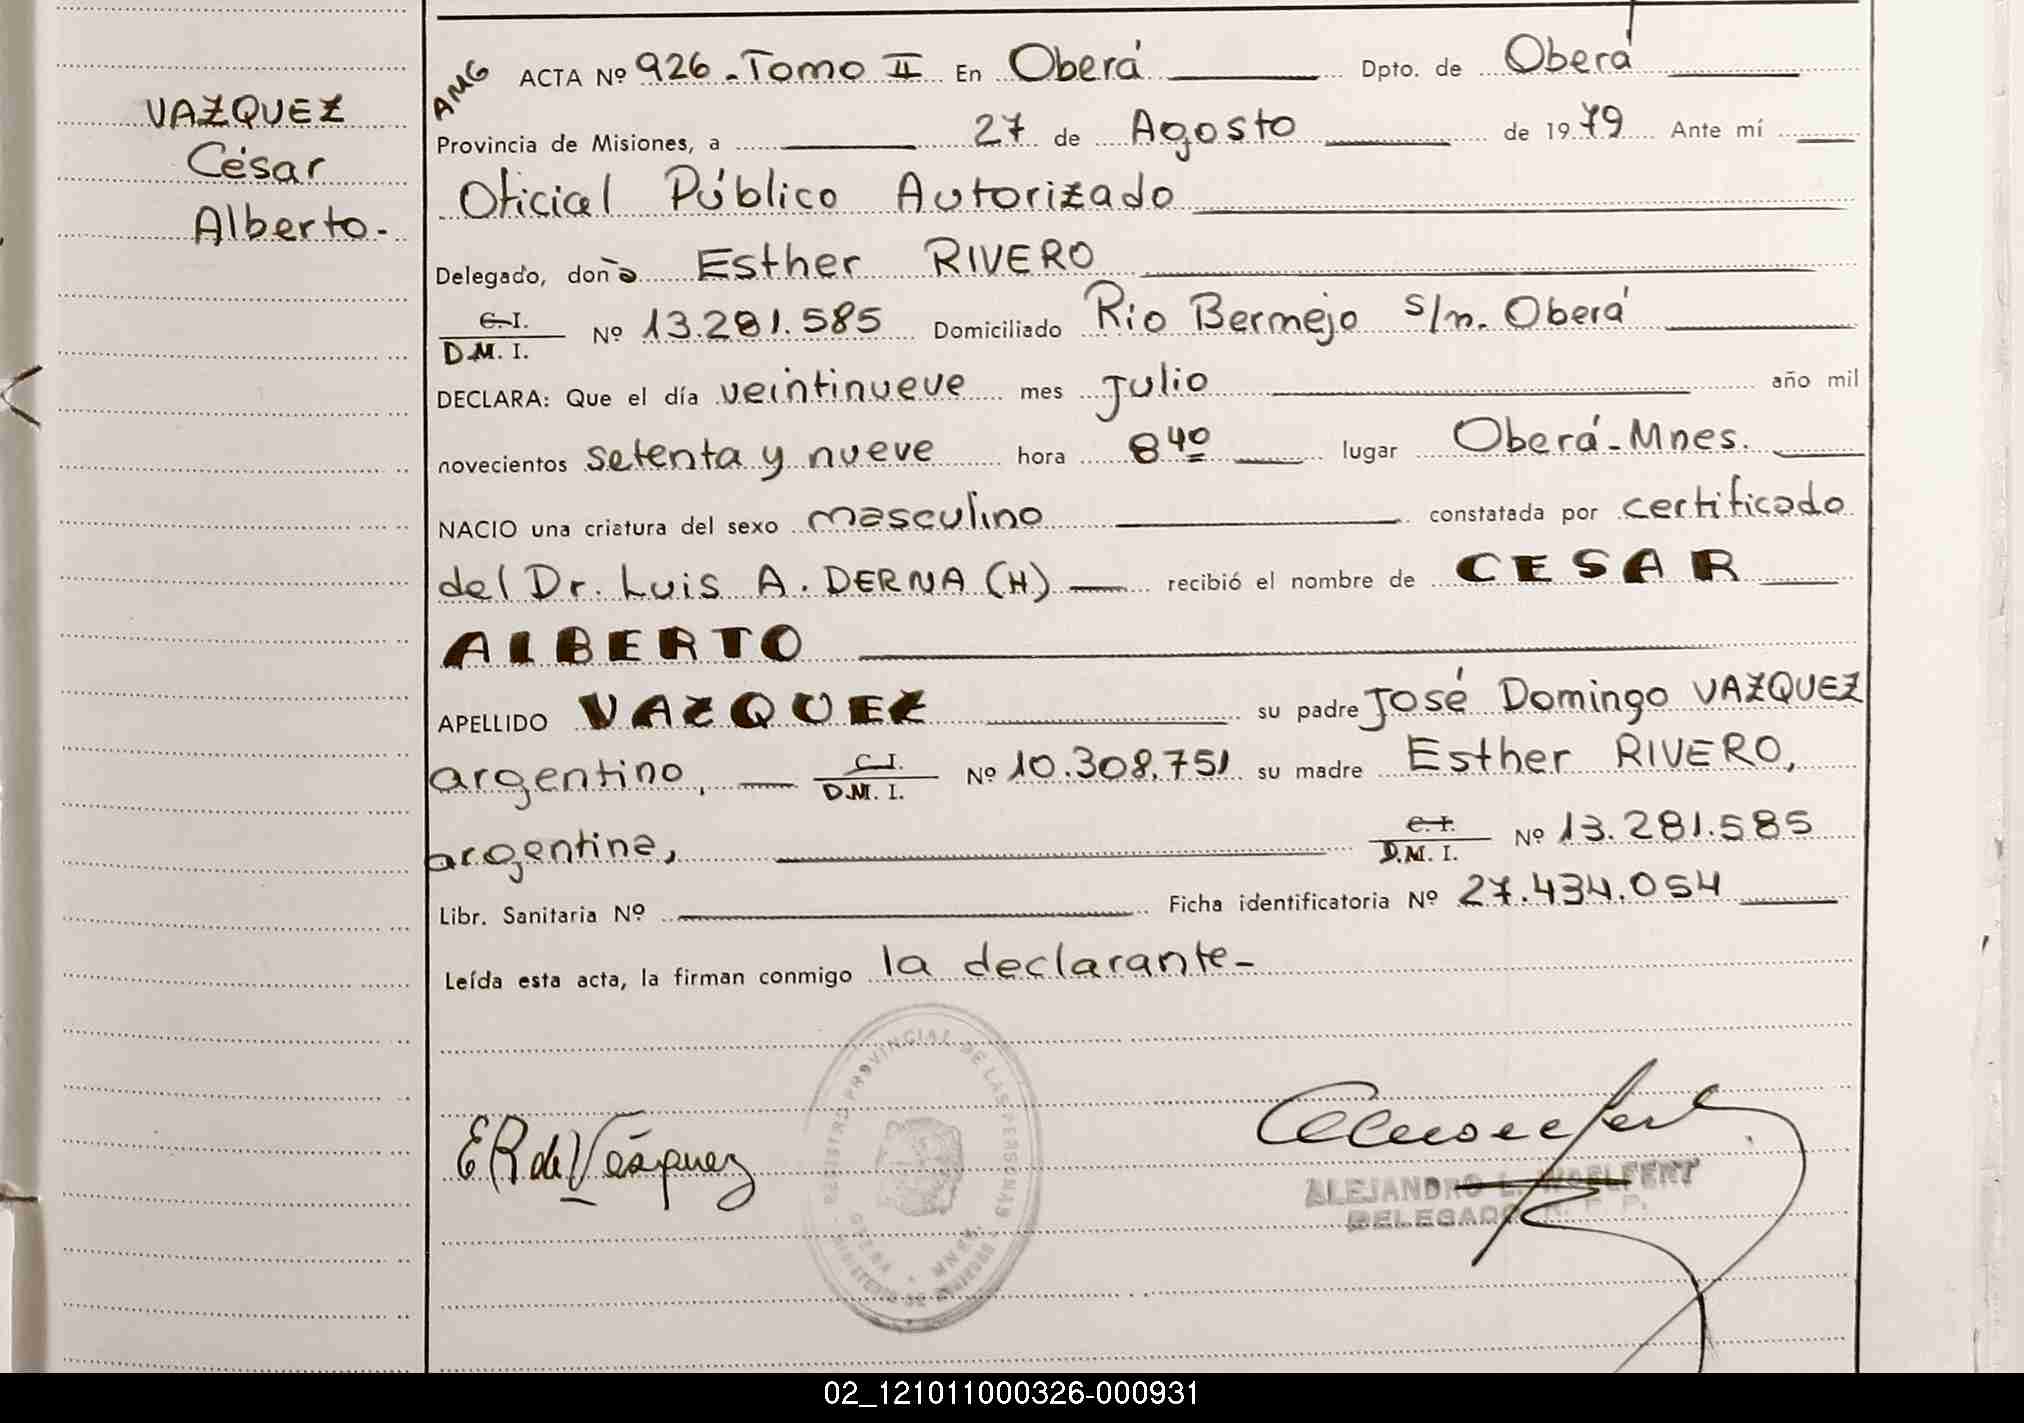 VAZQUEZ
César
Alberto-
AMG
ACTA Nº 926-Tomo II En Oberá Dpto. de Oberá
Provincia de Misiones, a 27 de Agosto de 1979 Ante mí
Oficial Público Autorizado
Delegado, doña Esther RIVERO
C.I.
D.M.I. Nº 13.281.585 Domiciliado Rio Bermejo s/n. Oberá
DECLARA: Que el día veintinueve mes Julio año mil
novecientos setenta y nueve hora 8 40 lugar Oberá-Mnes.
NACIO una criatura del sexo masculino constatada por certificado
del Dr. Luis A. DERNA (H) recibió el nombre de CESAR
ALBERTO
APELLIDO VAZQUEZ su padre José Domingo VAZQUEZ
argentino, C.I.
D.M.I. Nº 10.308.751 su madre Esther RIVERO,
argentina, C.I.
D.M.I. Nº 13.281.585
Libr. Sanitaria Nº Ficha identificatoria Nº 27.434.054
Leída esta acta, la firman conmigo la declarante-
REGISTRO PROVINCIAL DE LAS PERSONAS
MINISTERIO DE GOBIERNO
OBERA MNES.
E R de Vásquez
ALEJANDRO L. WOELFERT
DELEGADO R. P. P.
02_121011000326-000931